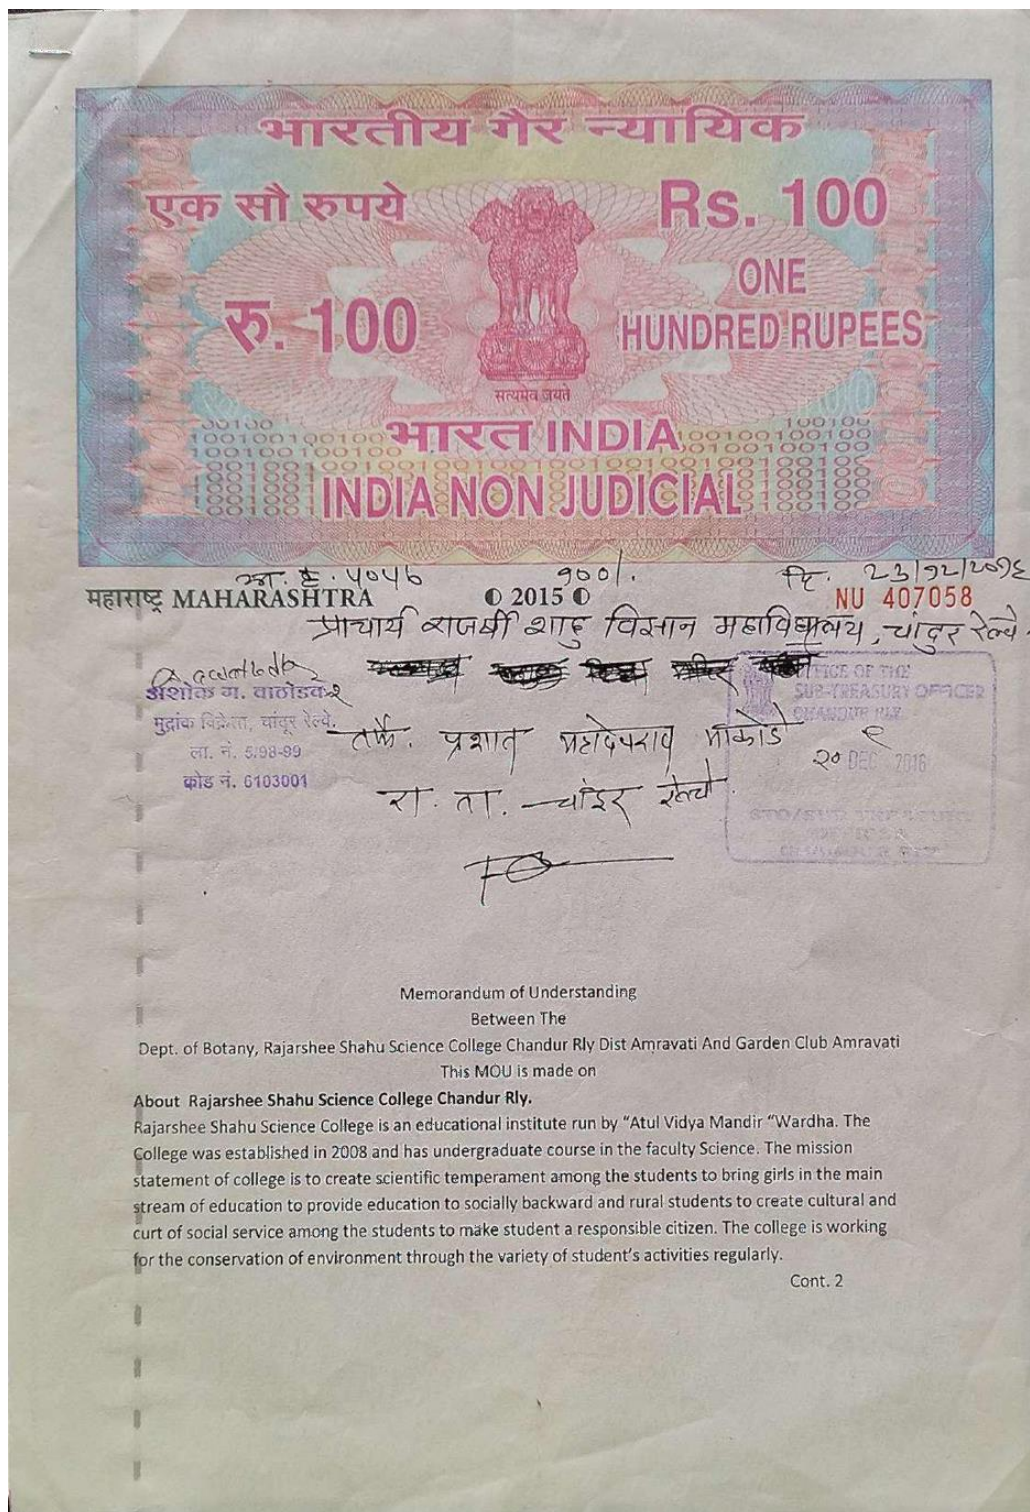 भारतीय गैर न्यायिक
एक सौ रुपये
Rs. 100
रु. 100
ONE
HUNDRED RUPEES
सत्यमेव जयते
भारत INDIA
INDIA NON JUDICIAL
अ. क्र. ५०५७ १००/. दि. २३/१२/२०१६
महाराष्ट्र MAHARASHTRA 2015 NU 407058
प्राचार्य राजर्षी शाहु विज्ञान महाविद्यालय, चांदुर रेल्वे.
अशोक ग. वाठोडकर
मुद्रांक विक्रेता, चांदूर रेल्वे.
ला. नं. 5/98-99
कोड नं. 6103001
OFFICE OF THE
SUB-TREASURY OFFICER
CHANDUR RLY
२० DEC 2016
तर्फे. प्रशांत महादेवराव
रा. ता. चांदुर रेल्वे.
Memorandum of Understanding
Between The
Dept. of Botany, Rajarshee Shahu Science College Chandur Rly Dist Amravati And Garden Club Amravati
This MOU is made on
About Rajarshee Shahu Science College Chandur Rly.
Rajarshee Shahu Science College is an educational institute run by “Atul Vidya Mandir “Wardha. The
College was established in 2008 and has undergraduate course in the faculty Science. The mission
statement of college is to create scientific temperament among the students to bring girls in the main
stream of education to provide education to socially backward and rural students to create cultural and
curt of social service among the students to make student a responsible citizen. The college is working
for the conservation of environment through the variety of student’s activities regularly.
Cont. 2